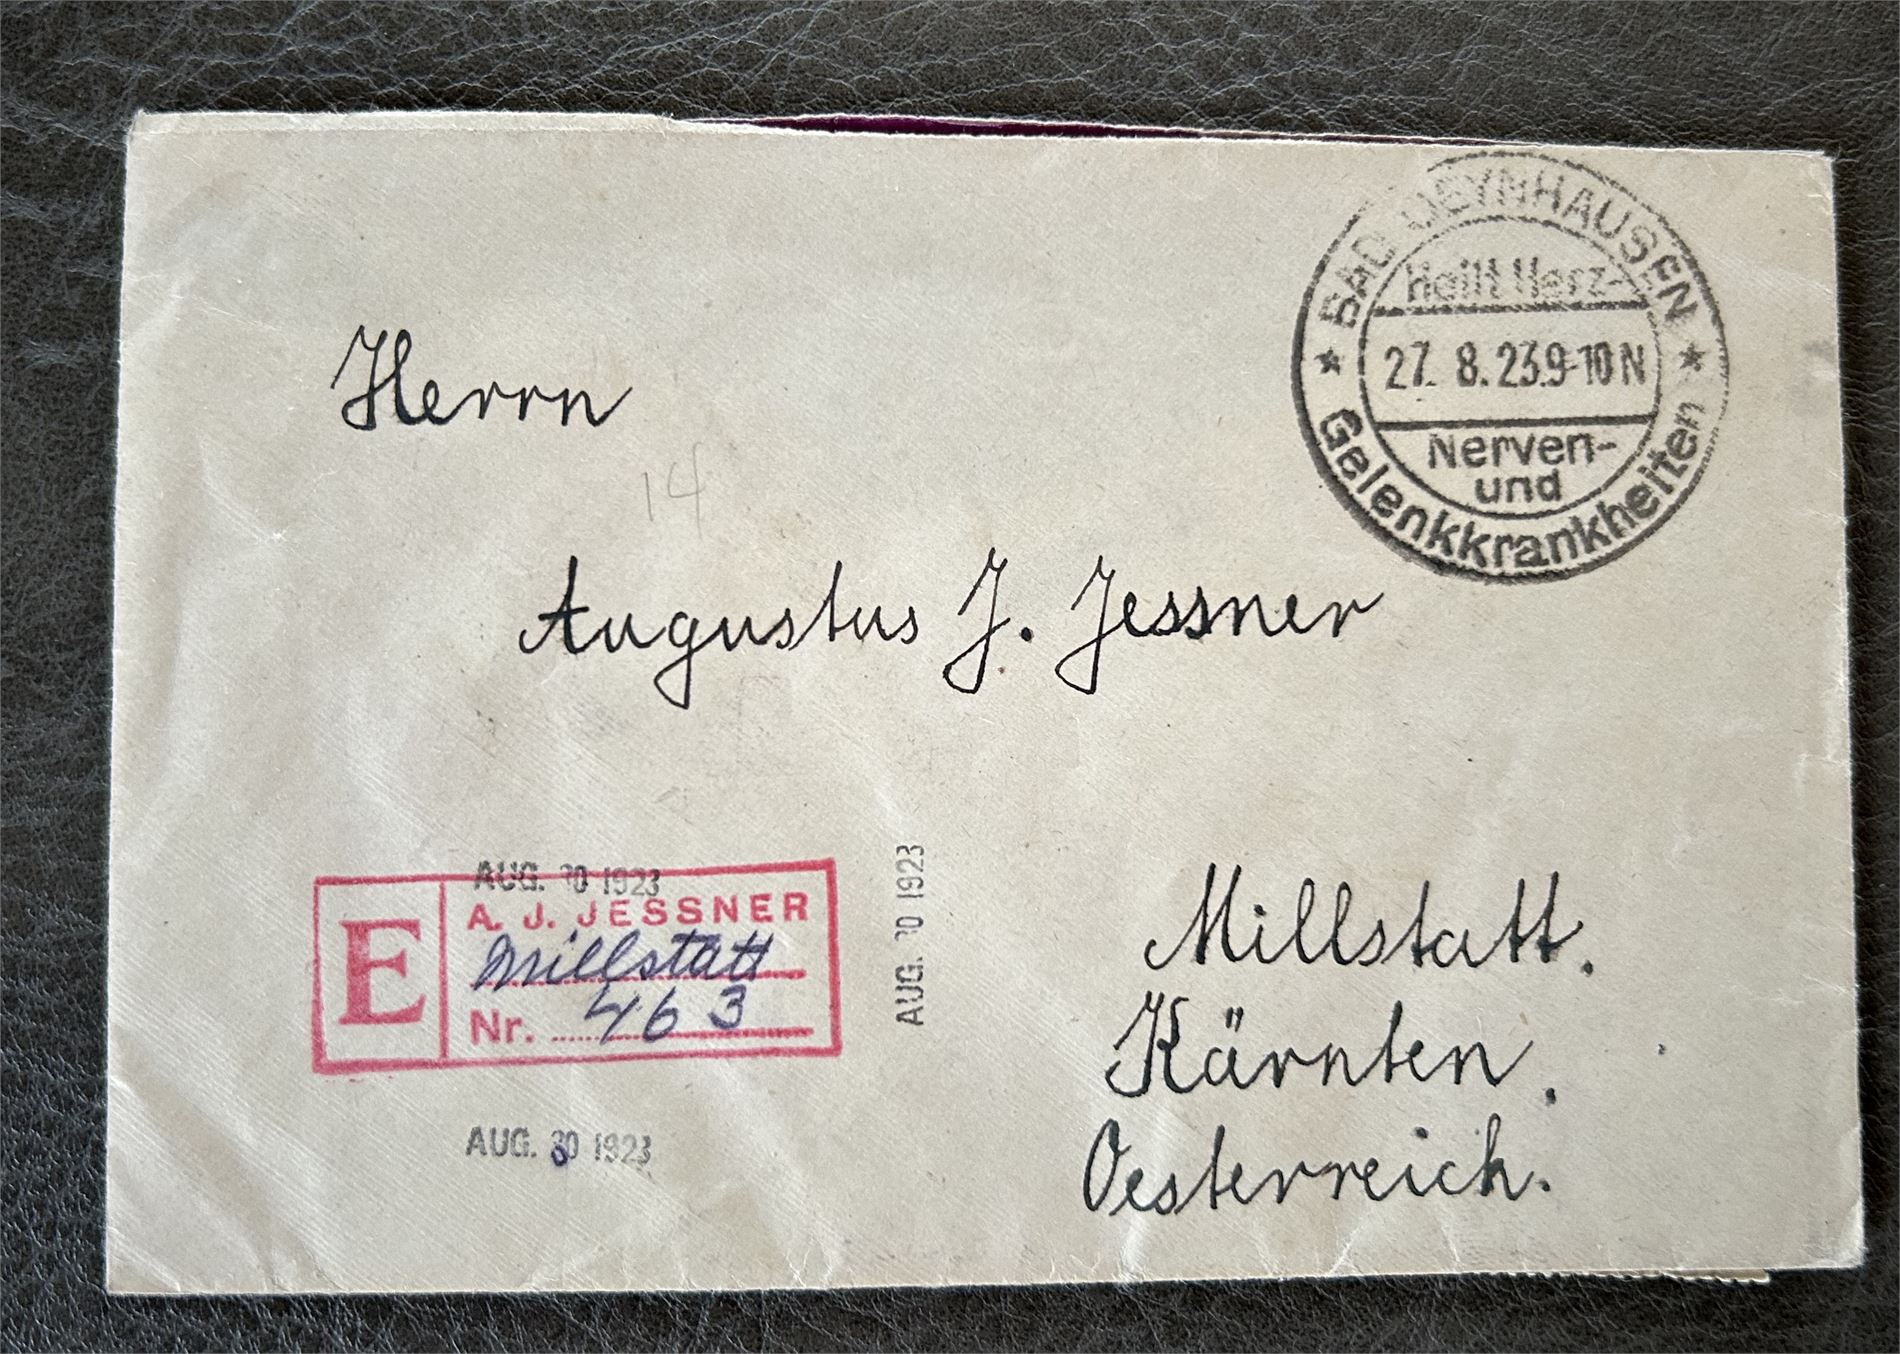 BAD OEYNHAUSEN
Heilt Herz-
27. 8. 23.9-10 N
Nerven-
und
Gelenkkrankheiten
Herrn
14
Augustus J. Jessner
AUG. 30 1923
E
A. J. JESSNER
Millstatt
Nr. 463
AUG. 30 1923
AUG. 30 1923
Millstatt.
Kärnten.
Oesterreich.